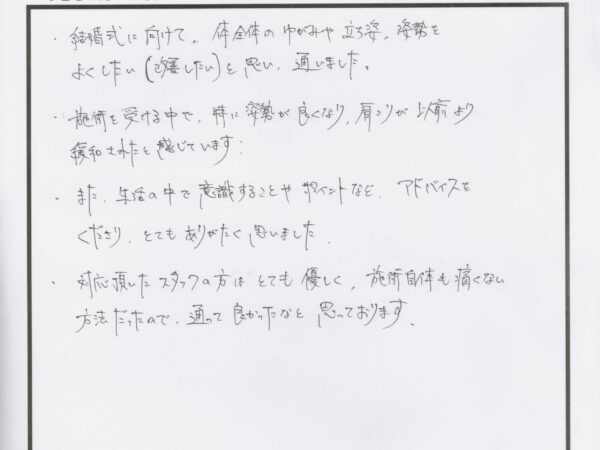 ・結婚式に向けて、体全体のゆがみや立ち姿、姿勢を
よくしたい(改善したい)と思い、通いました。
・施術を受ける中で、特に姿勢が良くなり、肩こりが以前より
緩和されたと感じています。
・また、生活の中で意識することやポイントなど、アドバイスを
くださり、とてもありがたく思いました。
・対応頂いたスタッフの方はとても優しく、施術自体も痛くない
方法だったので、通って良かったなと思っております。